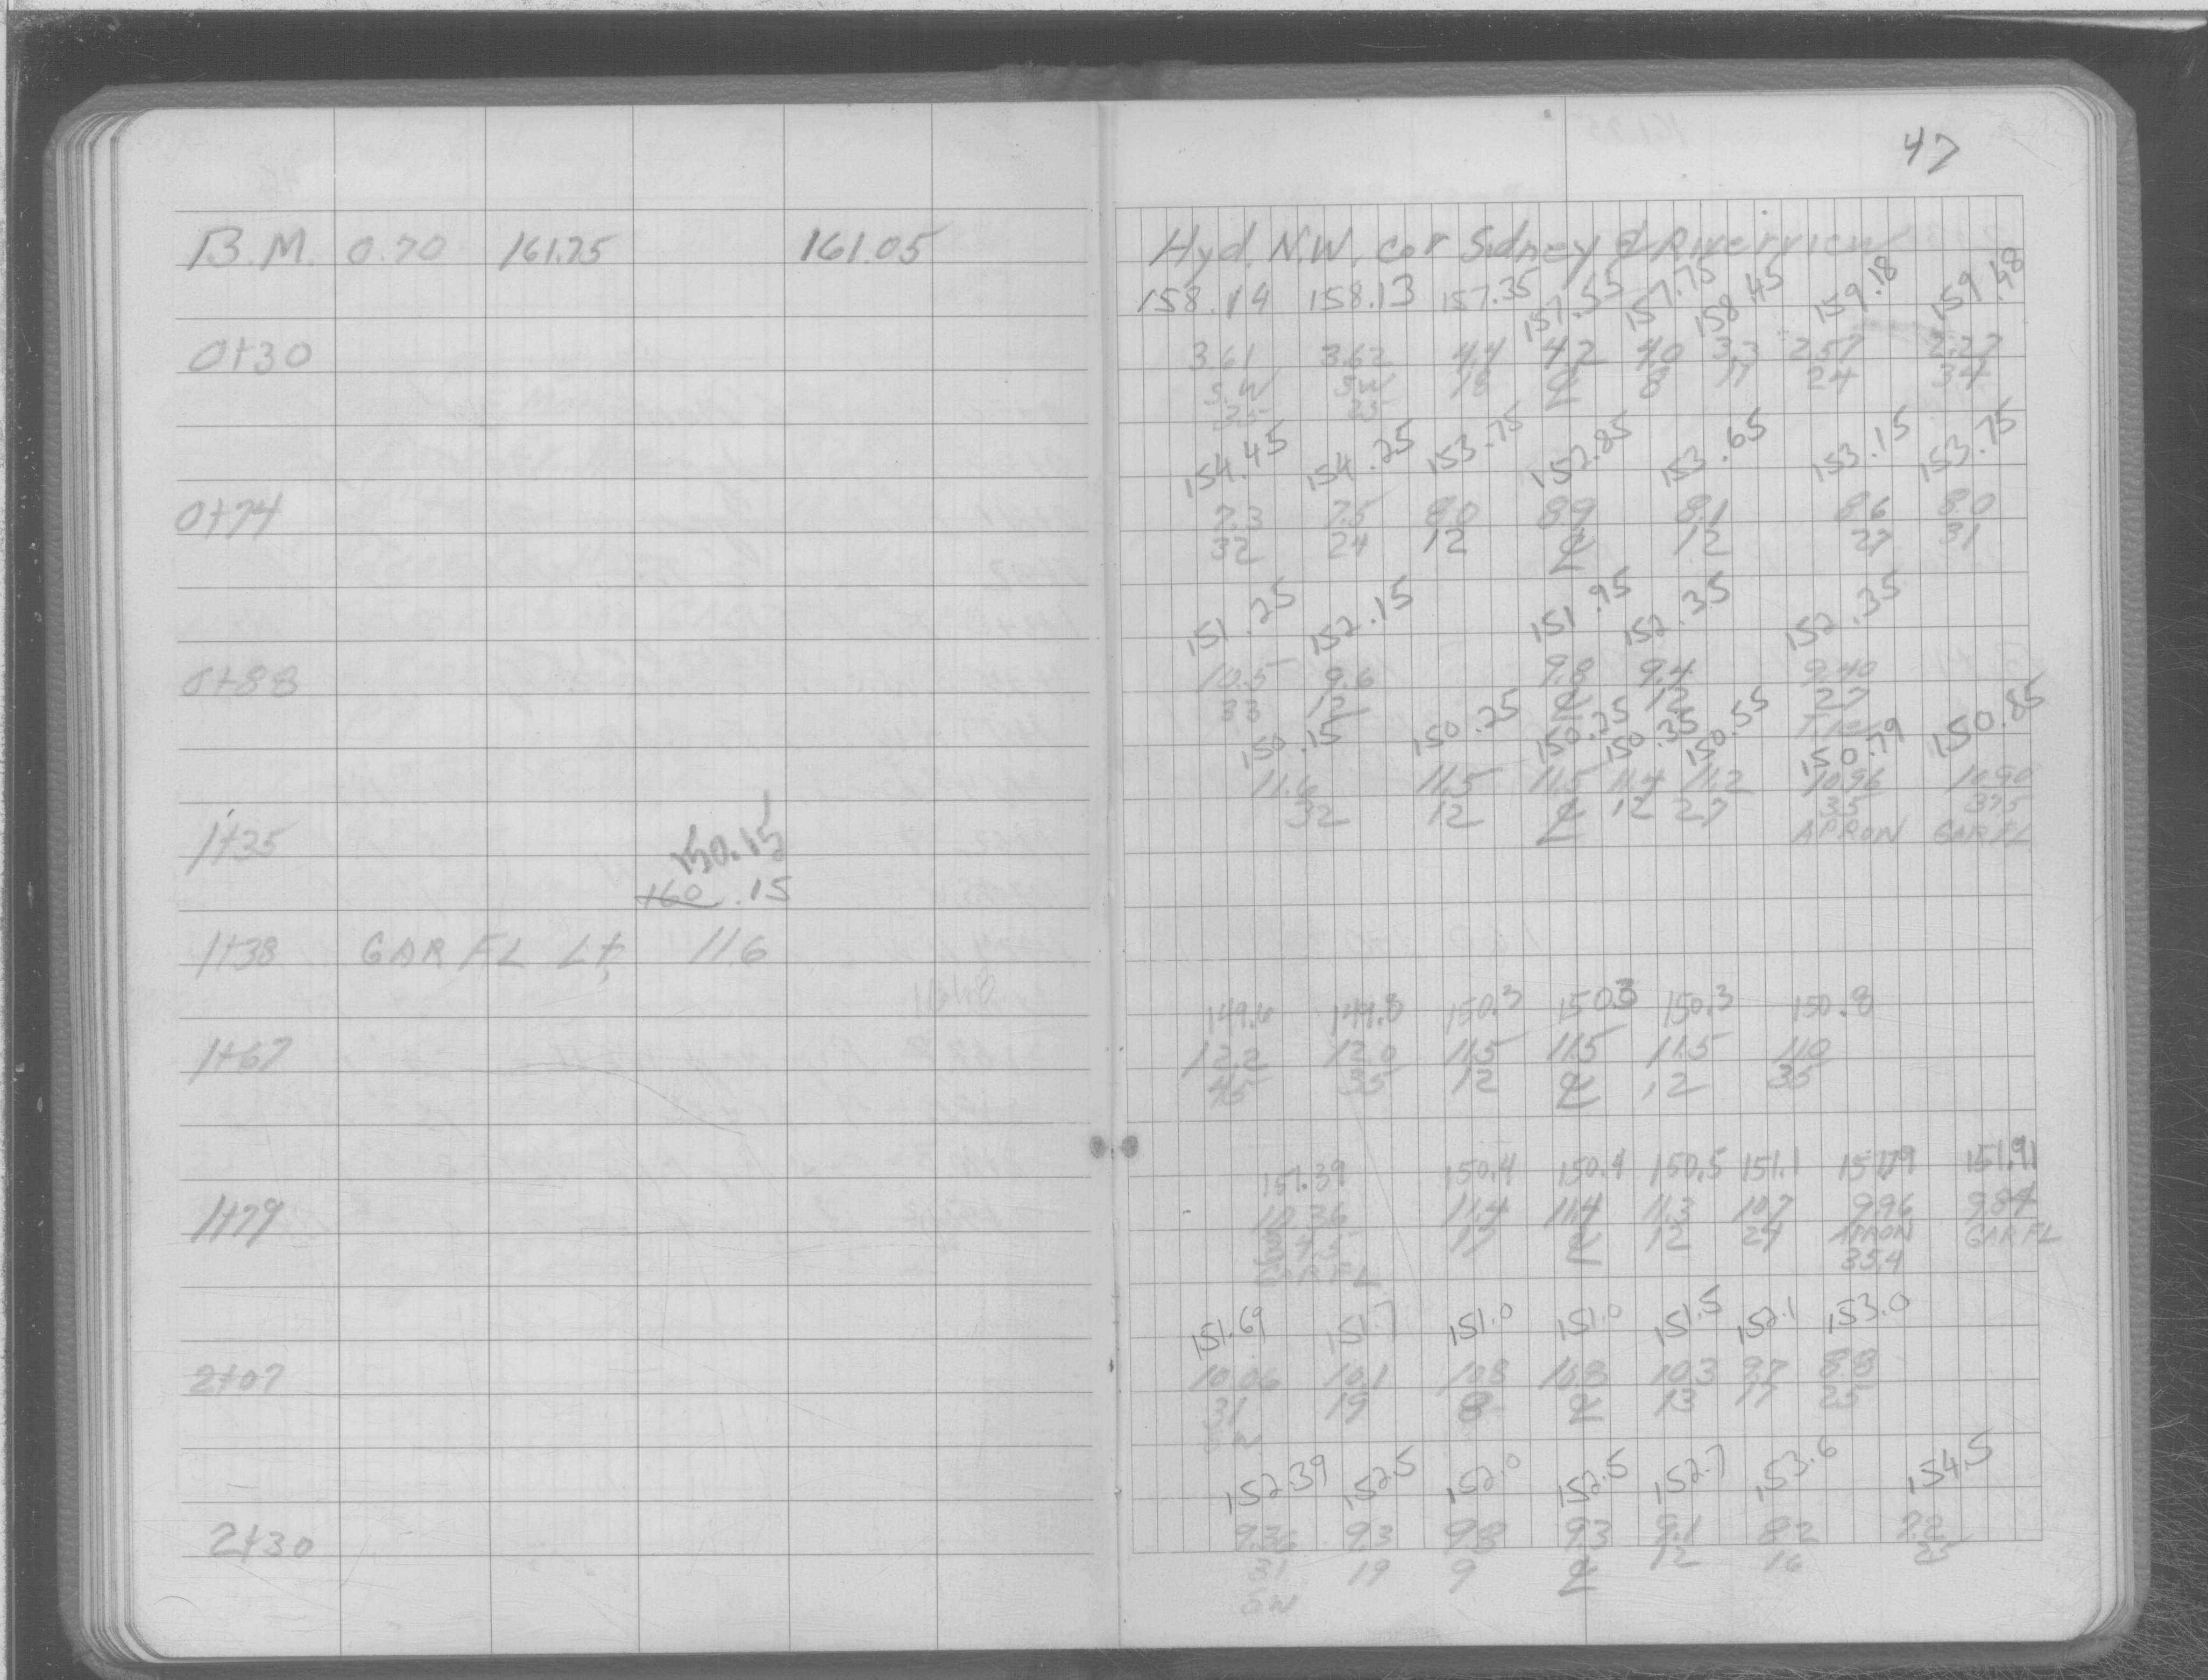 47
B.M. 0.70 161.75 161.05 Hyd. N.W. cor Sidney & Riverview
158.14 158.13 157.35 157.55 157.75 158.45 159.18 159.48
0+30 3.61 3.62 4.4 4.2 4.0 3.3 2.57 2.27
S.W SW 18 ℄ 8 11 24 34
35 25
154.45 154.25 153.75 152.85 153.65 153.15 153.75
0+74 7.3 7.5 8.0 8.9 8.1 8.6 8.0
32 24 12 ℄ 12 27 31
151.25 152.15 151.95 152.35 152.35
0+88 10.5 9.6 9.8 9.4 9.40
33 12 ℄ 12 27
150.15 150.25 150.25 150.35 150.55 150.79 150.85
11.6 11.5 11.5 11.4 11.2 10.96 10.90
1+35 32 12 ℄ 12 27 35 37.5
APRON GAR FL
150.15
160.15
1+38 GAR FL Lt, 11.6
149.6 149.8 150.3 150.3 150.3 150.8
1+67 12.2 12.0 11.5 11.5 11.5 11.0
45 35 12 ℄ 12 35
151.39 150.4 150.4 150.5 151.1 151.79 151.91
1+79 10.36 11.4 11.4 11.3 10.7 9.96 9.84
34.5 12 ℄ 12 24 APRON GAR FL
GAR FL 35.4
151.69 151.7 151.0 151.0 151.5 152.1 153.0
2+07 10.06 10.1 10.8 10.8 10.3 9.7 8.8
31 19 8 ℄ 13 17 25
SW
152.39 152.5 152.0 152.5 152.7 153.6 154.5
2+30 9.36 9.3 9.8 9.3 9.1 8.2 7.2
31 19 9 ℄ 12 16 25
SW